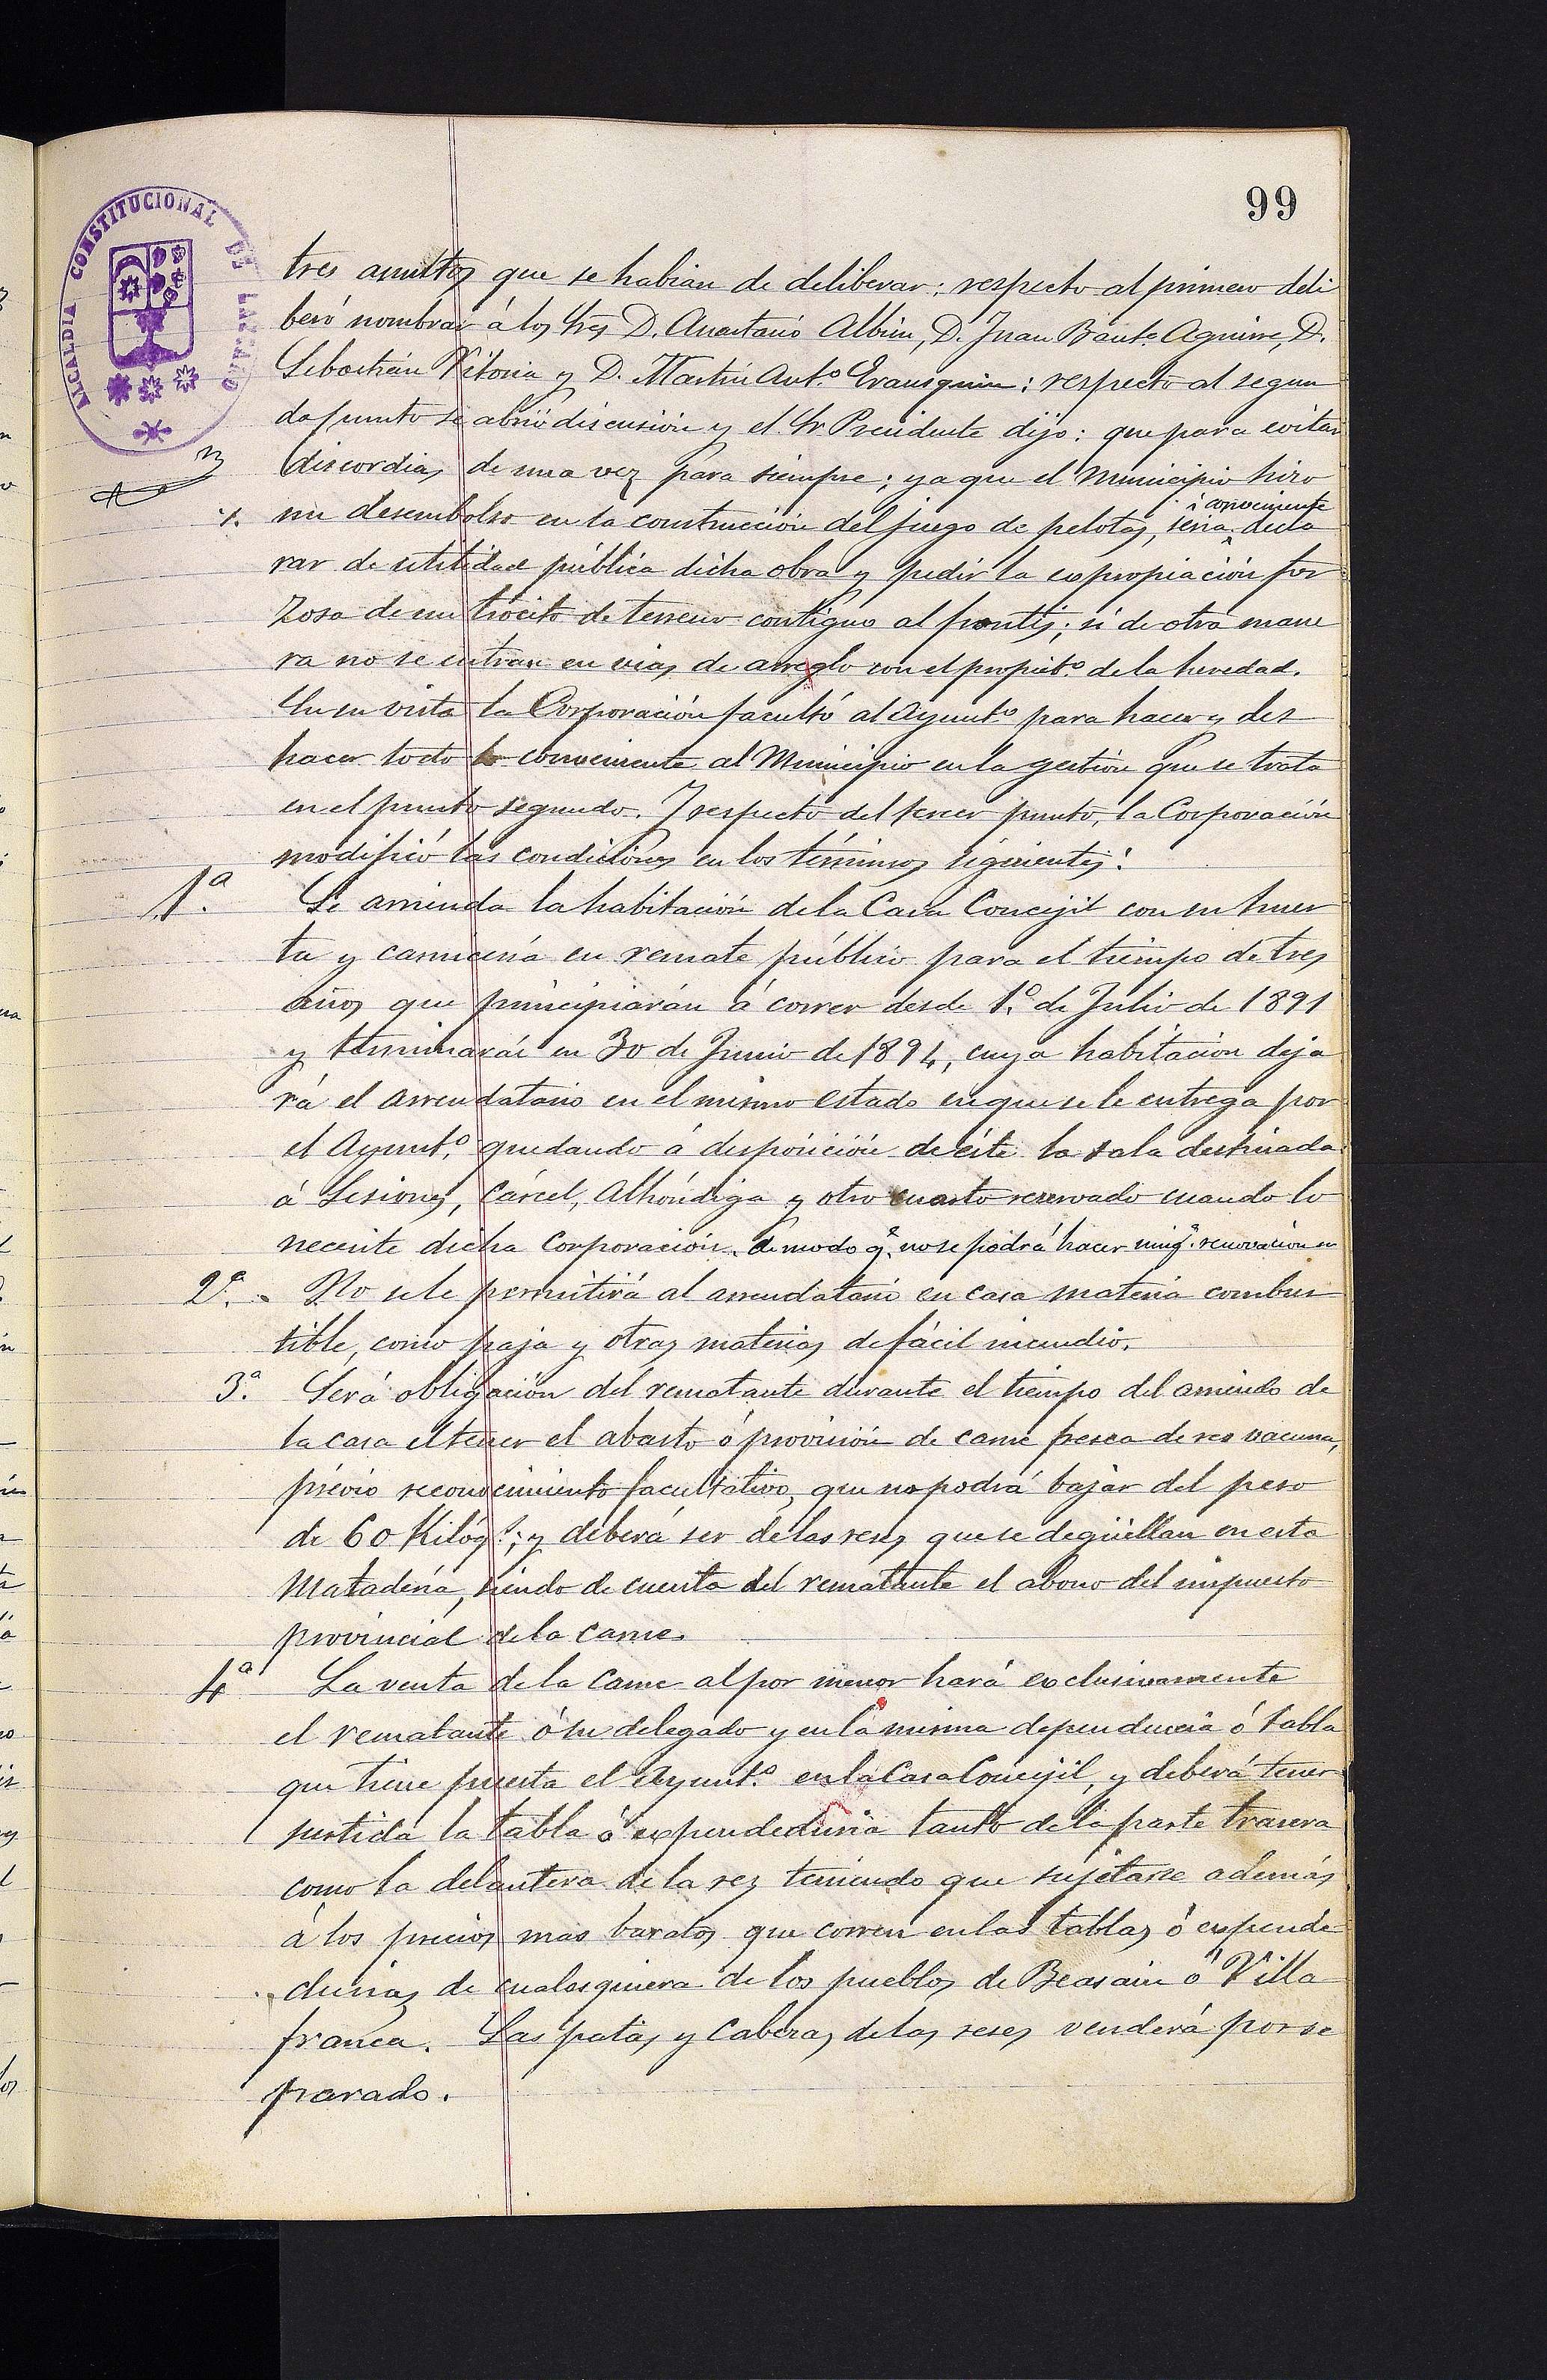 99
ALCALDIA CONSTITUCIONAL DE LAZCANO
tres asuntos que se habian de deliberar: respecto al primero deli
beró nombrar á los Sres D. Anastasio Albisu, D. Juan Baut.ª Aguirre, D.
Sebastián Vitoria y D. Martín Ant.º Erausquin: respecto al segun
do punto se abrió discusión y el Sr. Presidente dijo: que para evitar
discordias de una vez para siempre; ya que el Municipio hizo
conveniente
un desembolso en la construcción del juego de pelotas, seria decla
rar de utilidad pública dicha obra y pedir la expropiación for
zosa de un trocito de terreno contiguo al frontis; si de otra mane
ra no se entran en vias de arreglo con el propiet.º de la heredad.
En su vista la Corporación facultó al Ayunt.º para hacer y des
hacer todo lo conveniente al Municipio en la gestión que se trata
en el punto segundo. Y respecto del tercer punto, la Corporación
modificó las condiciones en los términos siguientes:
1.ª Se arrienda la habitación de la Casa Concejil con su huer
ta y carnicería en remate público para el tiempo de tres
años que principiarán á correr desde 1.º de Julio de 1891
y terminarán en 30 de Junio de 1894, cuya habitación deja
rá el arrendatario en el mismo estado en que se le entrega por
el Ayunt.º, quedando á disposición de éste la sala destinada
á Sesiones, Cárcel, Alhóndiga y otro cuarto reservado cuando lo
necesite dicha Corporación. de modo q.e no se podrá hacer ning.ª renovación en
2.ª - No se le permitirá al arrendatario en casa materia combus
tible, como paja y otras materias de fácil incendio.
3.ª Será obligación del rematante durante el tiempo del arriendo de
la casa el tener el abasto ó provisión de carne fresca de res vacuna,
prévio reconocimiento facultativo, que no podrá bajar del peso
de 60 Kilóg.s; y deberá ser de las reses que se degüellan en esta
Matadería, siendo de cuenta del rematante el abono del impuesto
provincial de la carne.
4.ª La venta de la carne al por menor hará exclusivamente
el rematante ó su delegado y en la misma dependencia ó tabla
que tiene puesta el Ayunt.º en la Casa Concejil, y deberá tener
surtida la tabla ó expendeduria tanto de la parte trasera
como la delantera de la res teniendo que sujetarse además
á los precios mas baratos que corren en las tablas ó expende
durias de cualesquiera de los pueblos de Beasain ó Villa
franca. Las patas y Cabezas de las reses venderá por se
parado.